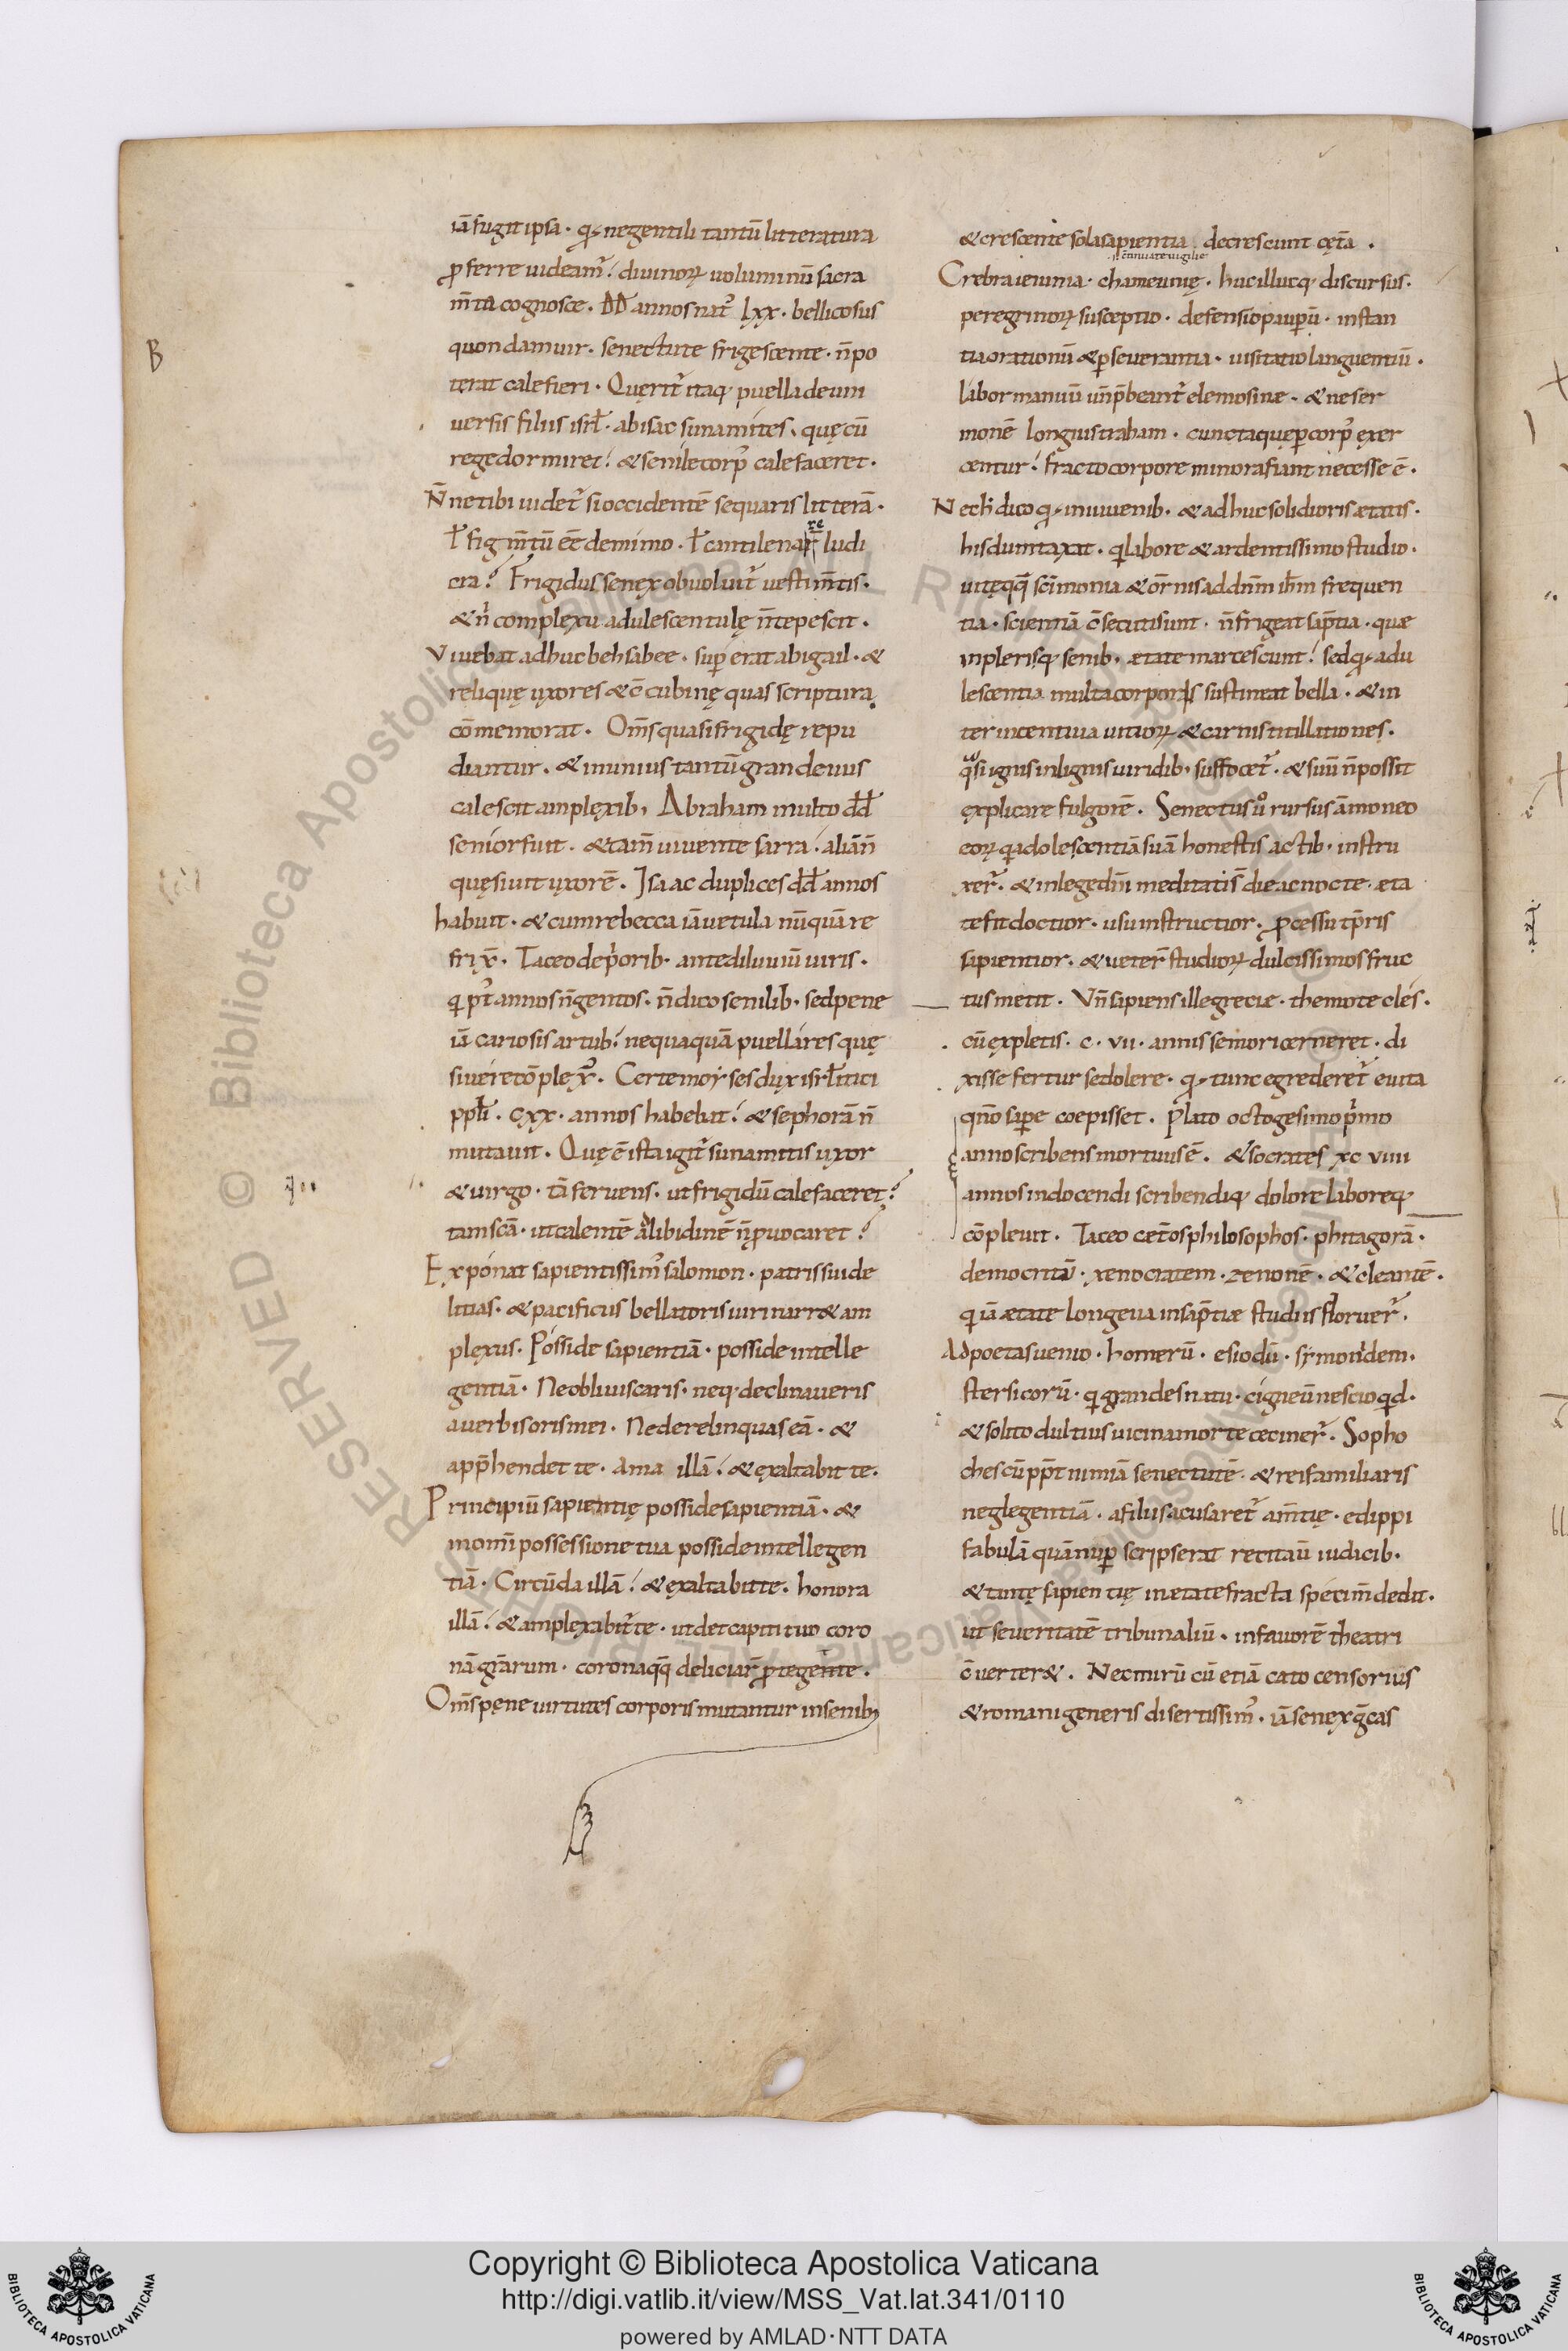 iā fugit ipsa · q̄ negentili tantū litteratura
ꝓferre uideam᷑ ? diuinoꝝ uoluminū sacra
m̄ta cognosce · DD annos nat᷒ lxx · bellicosus
quondam uir · senectute frigescente · n̄ po
terat calefieri · Quęrit᷑ itaq; puella de uni
uersis filiis isrl̄ · abisac sunamites · quę cū
rege dormiret ? & senile corp᷒ calefaceret ·
N̄ne tibi uidet᷑ si occidentē sequaris litterā ·
ł figm̄tū ēē de mimo · ł cantilenar̄ ludi
cra ? Frigidus senex obuoluit᷑ uestim̄tis ·
& n̄ complexu adulescentulę n̄ tepescit ·
Viuebat adhuc behsabee · supererat abigail · &
reliquę uxores & c̄cubinę quas scriptura
cōmemorat · Om̄s quasi frigidę repu
diantur · & in unius tantū grandeuus
calescit amplexib; Abraham multo dd̄
senior fuit · & tam̄ uiuente sarra · aliā n̄
quęsiuit uxorē · Isaac duplices dd̄ annos
habuit · & cum rebecca iā uetula nūquā re
frix̄ · Taceo de p̄orib; antediluuiū uiris ·
q p᷒t annos n̄gentos · n̄ dico senilib; sed pene
iā cariosis artub; ? nequaquā puellares quę
siuere cōplex᷒ · Certe moyses dux isrl̄itici
ppl̄i · cxx · annos habebat ? & sephorā n̄
mutauit · Quę ē ista igit᷑ sunamitis uxor
& uirgo · tā feruens · ut frigidū calefaceret ?
tam scā · ut calentē ad libidinē n̄ ꝓuocaret ?
Exponat sapientissim᷒ salomon · patris sui de
litias · & pacificus bellatoris uiri narr& am
plexus · Posside sapientiā · posside intelle
gentiā · Ne obliuiscaris · neq; declinaueris
a uerbis oris mei · Ne derelinquas eā · &
app̄hendet te · Ama illā ? & exaltabit te ·
Principiū sapientię posside sapientiā · &
in om̄i possessione tua posside intellegen
tiā · Circūda illā ? & exaltabit te · honora
illā ? & amplexabit᷑ te · ut det capiti tuo coro
nā gr̄arum · corona qq̄ deliciar̄ ꝓtegente ·
Om̄s pene uirtutes corporis mutantur in senib;
B
& crescente sola sapientia decrescunt cęt̄a ·
Crebra ieiunia · chameunię · huc illucq; discursus ·
peregrinoꝝ susceptio · defensio pauꝑū · instan
tia orationū & ꝑseuerantia · uisitatio languentiū ·
labor manuū un̄ p̄beant᷑ elemosinę · & ne ser
monē longius traham · cuncta quę ꝑ corp᷒ exer
centur ? fracto corpore minora fiant necesse ē ·
Nec h̄ dico q̄ in iuuenib; & adhuc solidioris ætatis ·
his dumtaxat · q labore & ardentissimo studio ·
uitę qq̄ sc̄imonia & or̄nis ad dn̄m ih̄m frequen
tia · scientiā c̄secuti sunt · n̄ frigeat sap̄tia · quæ
in plerisq; senib; ætate marcescunt ? sed q̄ adu
lescentia multa corporis sustineat bella · & in
ter incentiua uitioꝝ & carnis titillationes ·
q̄si ignis in lignis uiridib; suffocet᷑ · & suū n̄ possit
explicare fulgorē · Senectus u͛o rursus āmoneo
eoꝝ q adolescentiā suā honestis actib; instru
xer᷑ · & in lege dn̄i meditati s̄ die ac nocte · æta
te fit doctior · usu instructior · ꝓcessu tp̄ris
sapientior · & ueter̄ studioꝝ dulcissimos fruc
tus metit · Vn̄ sapiens ille grecie · themotecles ·
cū expletis · c · vii · annis se mori cerneret · di
xisse fertur se dolere · q̄ tunc egrederet᷑ e uita
qn̄o saꝑe coepisset · Plato octogesimo p̄mo
anno scribens mortuus ē · & socrates xc viiii
annos in docendi scribendiq; dolore laboreq;
cōpleuit · Taceo cet̄os philosophos · phitagorā ·
democritū · xenocratem · zenonē · & cleantē ·
q iā ætate longeua in sap̄tiæ studiis floruer᷑ ·
Ad poetas uenio · homerū · esiodū · symonidem ·
stersicorū · q grandes natu · cigneū nescio qd ·
& solito dultius uicina morte ceciner᷑ · Sopho
cles cū ppt̄ nimiā senectutē · & rei familiaris
neglegentiā · a filiis acusaret᷑ am̄tię · edippi
fabulā quā nuꝑ scripserat recitaū iudicib;
& tantę sapientię in etate fracta specim̄ dedit ·
ut seueritatē tribunaliū · in fauorē theatri
c̄uerter& · Nec mirū cū etiā cato censorius
& romani generis disertissim᷒ · iā senex gcas
Copyright © Biblioteca Apostolica Vaticana
http://digi.vatlib.it/view/MSS_Vat.lat.341/0110
powered by AMLAD·NTT DATA
BIBLIOTECA APOSTOLICA VATICANA
BIBLIOTECA APOSTOLICA VATICANA